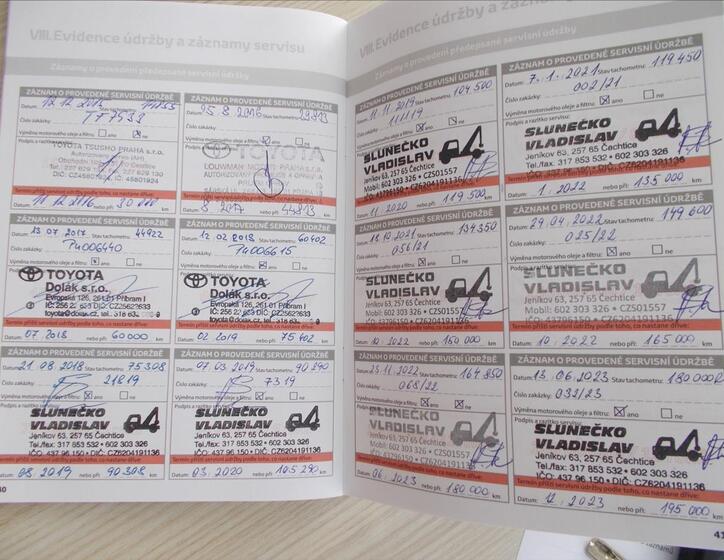 VIII. Evidence údržby a záznamy servisu
Záznamy o provedení předepsané servisní údržby
ZÁZNAM O PROVEDENÉ SERVISNÍ ÚDRŽBĚ
Datum: 12 12 2015 Stav tachometru:
Číslo zakázky: TT7533
Výměna motorového oleje a filtru: ano ne
TOYOTA TSUSHO PRAHA s.r.o.
Termín příští servisní údržby podle toho, co nastane dříve:
Datum: 11 12 2016 nebo při: 30 000 km
ZÁZNAM O PROVEDENÉ SERVISNÍ ÚDRŽBĚ
Datum: 25 8 2016 Stav tachometru: 29813
Číslo zakázky:
Výměna motorového oleje a filtru: ano ne
TOYOTA
LOUWMAN
Termín příští servisní údržby podle toho, co nastane dříve:
Datum: 8 2017 nebo při: 44813 km
ZÁZNAM O PROVEDENÉ SERVISNÍ ÚDRŽBĚ
Datum: 13 07 2017 Stav tachometru: 44922
Číslo zakázky: TU006440
Výměna motorového oleje a filtru: ano ne
TOYOTA
Dolák s.r.o.
Evropská 126, 261 01 Příbram I
Termín příští servisní údržby podle toho, co nastane dříve:
Datum: 07 2018 nebo při: 60000 km
ZÁZNAM O PROVEDENÉ SERVISNÍ ÚDRŽBĚ
Datum: 12 02 2018 Stav tachometru: 60402
Číslo zakázky: TU006615
Výměna motorového oleje a filtru: ano ne
TOYOTA
Dolák s.r.o.
Evropská 126, 261 01 Příbram I
Termín příští servisní údržby podle toho, co nastane dříve:
Datum: 02 2019 nebo při: 75402 km
ZÁZNAM O PROVEDENÉ SERVISNÍ ÚDRŽBĚ
Datum: 21 08 2018 Stav tachometru: 75308
Číslo zakázky: 21819
Výměna motorového oleje a filtru: ano ne
SLUNEČKO
VLADISLAV
Jeníkov 63, 257 65 Čechtice
Tel./fax: 317 853 532 • 602 303 326
IČO: 437 96 150 • DIČ: CZ6204191136
Termín příští servisní údržby podle toho, co nastane dříve:
Datum: 08 2019 nebo při: 90308 km
ZÁZNAM O PROVEDENÉ SERVISNÍ ÚDRŽBĚ
Datum: 07 03 2019 Stav tachometru: 90290
Číslo zakázky: 7319
Výměna motorového oleje a filtru: ano ne
SLUNEČKO
VLADISLAV
Jeníkov 63, 257 65 Čechtice
Tel./fax: 317 853 532 • 602 303 326
IČO: 437 96 150 • DIČ: CZ6204191136
Termín příští servisní údržby podle toho, co nastane dříve:
Datum: 03 2020 nebo při: 105 290 km
VIII. Evidence údržby a záznamy
Záznamy o provedení předepsané servisní údržby
ZÁZNAM O PROVEDENÉ SERVISNÍ ÚDRŽBĚ
Datum: 11 11 2019 Stav tachometru: 104 500
Číslo zakázky: 111119
Výměna motorového oleje a filtru: ano ne
SLUNEČKO
VLADISLAV
Jeníkov 63, 257 65 Čechtice
Mobil: 602 303 326 • CZS01557
IČO: 43796150 • CZ6204191136
Datum: 11 2020 nebo při: 119 500 km
ZÁZNAM O PROVEDENÉ SERVISNÍ ÚDRŽBĚ
Datum: 7. 1. 2021 Stav tachometru: 119 450
Číslo zakázky: 002/21
Výměna motorového oleje a filtru: ano ne
Podpis a razítko servisu:
SLUNEČKO
VLADISLAV
Jeníkov 63, 257 65 Čechtice
Tel./fax: 317 853 532 • 602 303 326
Datum: 1. 2022 nebo při: 135 000 km
ZÁZNAM O PROVEDENÉ SERVISNÍ ÚDRŽBĚ
2021 Stav tachometru: 134350
Číslo zakázky: 056/21
Výměna motorového oleje a filtru: ano ne
SLUNEČKO
VLADISLAV
Jeníkov 63, 257 65 Čechtice
Mobil: 602 303 326 • CZS01557
Termín příští servisní údržby podle toho, co nastane dříve:
Datum: 10. 2022 nebo při: 150 000 km
ZÁZNAM O PROVEDENÉ SERVISNÍ ÚDRŽBĚ
Datum: 29. 04. 2022 Stav tachometru: 149 600
Číslo zakázky: 025/22
Výměna motorového oleje a filtru: ano ne
SLUNEČKO
VLADISLAV
Jeníkov 63, 257 65 Čechtice
Mobil: 602 303 326 • CZS01557
Termín příští servisní údržby podle toho, co nastane dříve:
Datum: 10. 2022 nebo při: 165 000 km
ZÁZNAM O PROVEDENÉ SERVISNÍ ÚDRŽBĚ
Datum: 25. 11. 2022 Stav tachometru: 164 850
Číslo zakázky: 068/22
Výměna motorového oleje a filtru: ano ne
SLUNEČKO
VLADISLAV
Jeníkov 63, 257 65 Čechtice
Mobil: 602 303 326 • CZS01557
Termín příští servisní údržby podle toho, co nastane dříve:
Datum: 06. 2023 nebo při: 180 000 km
ZÁZNAM O PROVEDENÉ SERVISNÍ ÚDRŽBĚ
Datum: 13. 06. 2023 Stav tachometru: 180 000
Číslo zakázky: 032/23
Výměna motorového oleje a filtru: ano ne
Podpis a razítko servisu:
SLUNEČKO
VLADISLAV
Jeníkov 63, 257 65 Čechtice
Tel./fax: 317 853 532 • 602 303 326
IČO: 437 96 150 • DIČ: CZ6204191136
Termín příští servisní údržby podle toho, co nastane dříve:
Datum: 12. 2023 nebo při: 195 000 km